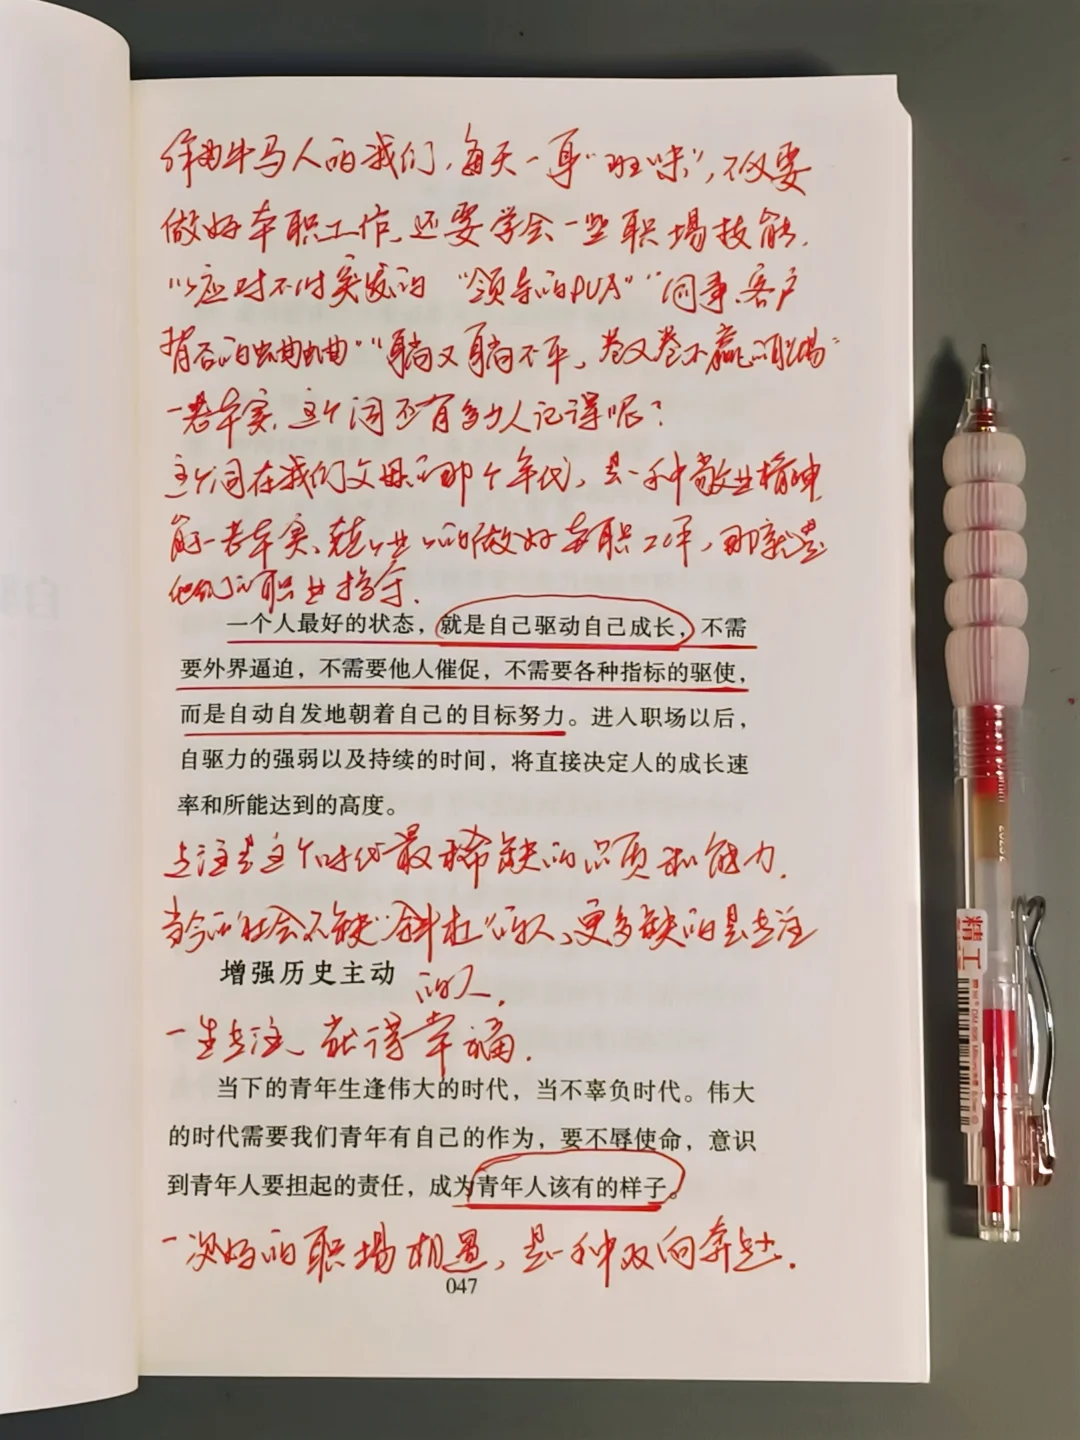 牛马人的我们，每天一身“班味”，不仅要
做好本职工作，还要学会一些职场技能，
以应对不时突发的“领导的PUA”“同事、客户
背后的蛐蛐”“躺又躺不平，卷又卷不赢的职场”
老本实，这个词还有多少人记得呢？
这个词在我们父母的那个年代，是一种敬业精神
老本实、兢兢业业的做好本职工作，那就是
他们的职业指导．
一个人最好的状态，就是自己驱动自己成长，不需
要外界逼迫，不需要他人催促，不需要各种指标的驱使，
而是自动自发地朝着自己的目标努力。进入职场以后，
自驱力的强弱以及持续的时间，将直接决定人的成长速
率和所能达到的高度。
专注是这个时代最稀缺的品质和能力．
当今的社会不缺“斜杠”的人、更多缺的是专注
的人．
增强历史主动
一生专注、获得幸福．
当下的青年生逢伟大的时代，当不辜负时代。伟大
的时代需要我们青年有自己的作为，要不辱使命，意识
到青年人要担起的责任，成为青年人该有的样子。
一次好的职场相遇，是一种双向奔赴．
047
精工